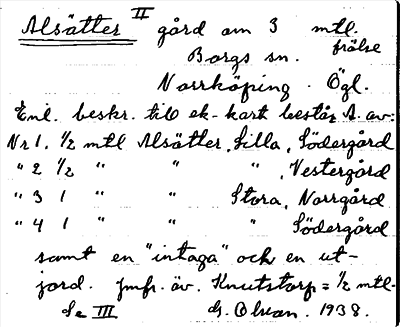 Alsätter II gård om 3 mtl.
frälse
Borgs sn.
Norrköping. Ögl.
Enl. beskr. till ek-kart består A. av:
Nr 1. 1/2 mtl Alsätter, Lilla, Södergård
" 2 1/2 " " " , Vestergård
" 3 1 " " Stora, Norrgård
" 4 1 " " " Södergård
samt en "intaga" och en ut-
jord. Jmfr. äv. Knutstorp = 1/2 mtl.
Se III G. Olson. 1938.